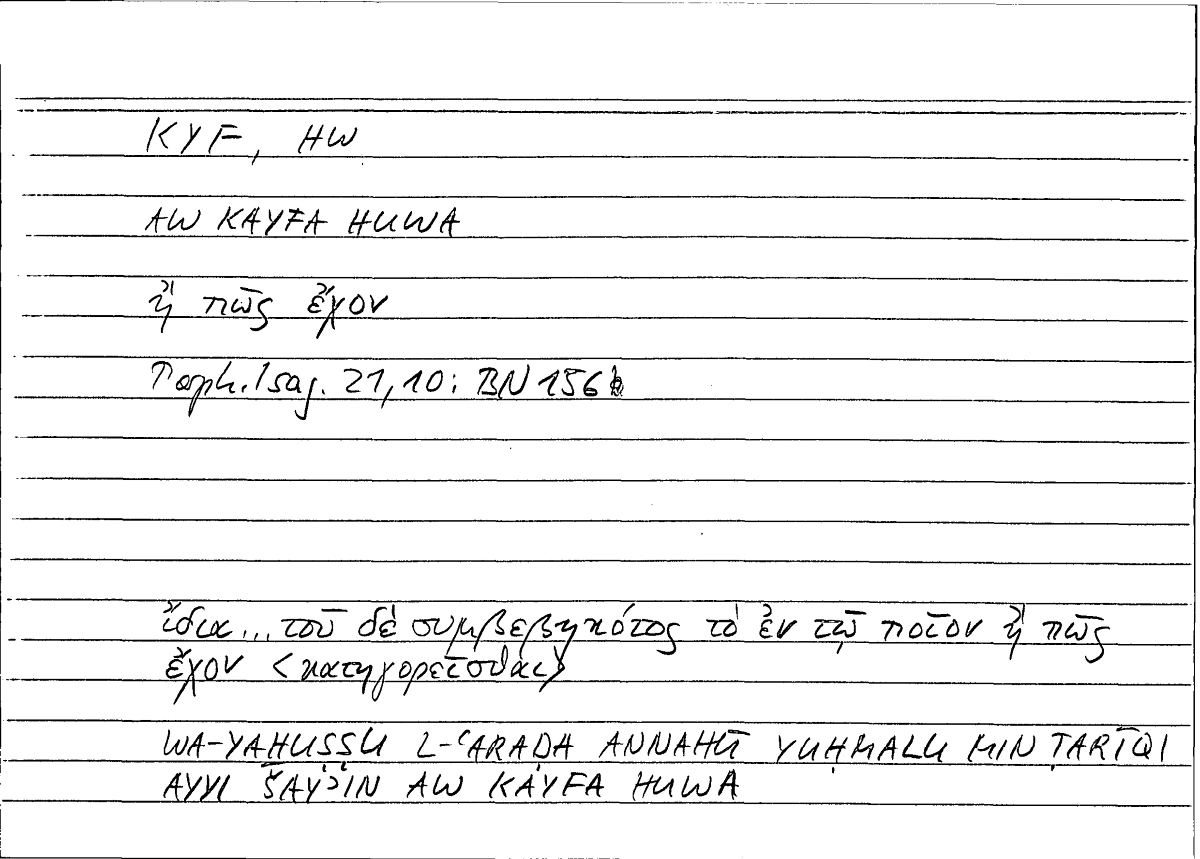 KYF, HW
AW KAYFA HUWA
ἢ πῶς ἔχον
Porph. Isag. 21,10: BN 156b
ἴδια... τοῦ δὲ συμβεβηκότος τὸ ἐν τῷ ποῖον ἢ πῶς
ἔχον <κατηγορεῖσθαι>
WA-YAḪUṢṢU L-ʿARAḌA ANNAHŪ YUḤMALU MIN ṬARĪQI
AYYI ŠAYʾIN AW KAYFA HUWA